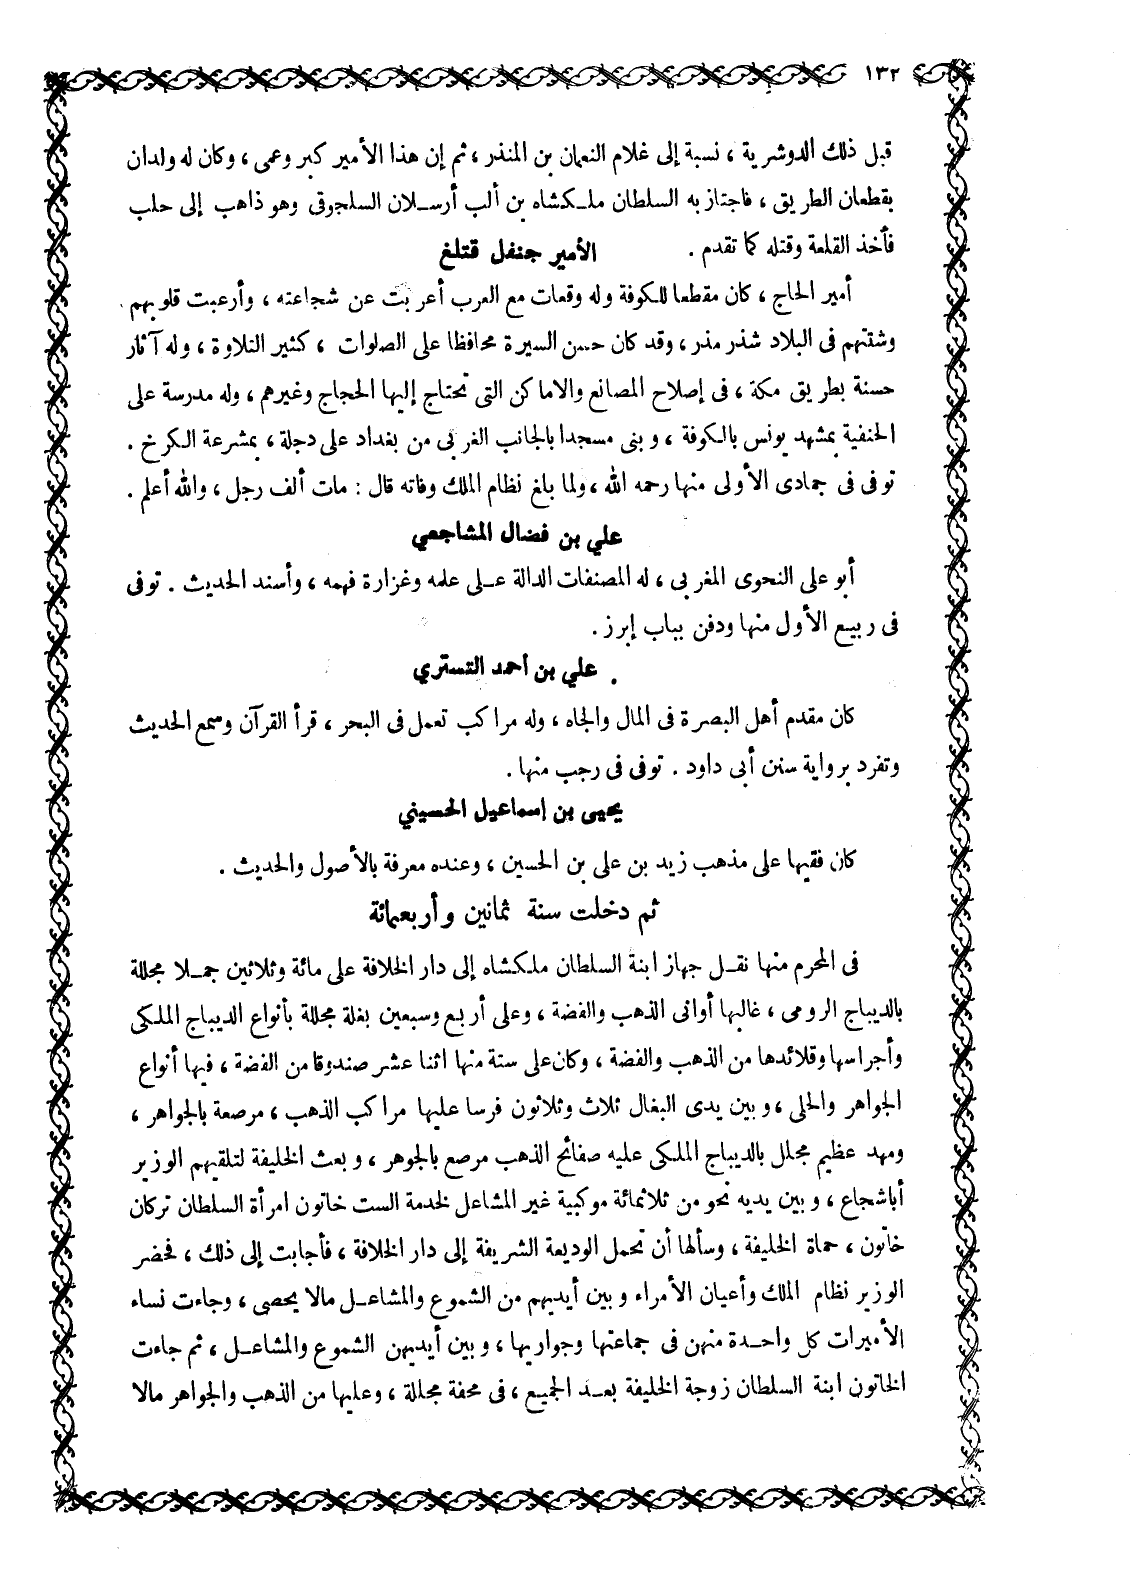 ١٣٢
قبل ذلك الدوشرية ، نسبة إلى غلام النعمان بن المنذر ، ثم إن هذا الأمير كبر وعمى ، وكان له ولدان
يقطعان الطريق ، فاجتاز به السلطان ملكشاه بن ألب أرسلان السلجوقى وهو ذاهب إلى حلب
فأخذ القلعة وقتله كما تقدم .
الأمير جنفل قتلغ
أمير الحاج ، كان مقطعا للكوفة وله وقعات مع العرب أعربت عن شجاعته ، وأرعبت قلوبهم
وشتتهم فى البلاد شذر مذر ، وقد كان حسن السيرة محافظا على الصلوات ، كثير التلاوة ، وله آثار
حسنة بطريق مكة ، فى إصلاح المصانع والاماكن التى تحتاج إليها الحجاج وغيرهم ، وله مدرسة على
الحنفية بمشهد يونس بالكوفة ، وبنى مسجدا بالجانب الغربى من بغداد على دجلة ، بمشرعة الكرخ .
توفى فى جمادى الأولى منها رحمه الله ، ولما بلغ نظام الملك وفاته قال : مات ألف رجل ، والله أعلم .
علي بن فضال المشاجعي
أبو على النحوى المغربى ، له المصنفات الدالة على علمه وغزارة فهمه ، وأسند الحديث . توفى
فى ربيع الأول منها ودفن بباب إبرز .
علي بن أحمد التستري
كان مقدم أهل البصرة فى المال والجاه ، وله مراكب تعمل فى البحر ، قرأ القرآن وسمع الحديث
وتفرد برواية سنن أبى داود . توفى فى رجب منها .
يحيى بن إسماعيل الحسيني
كان فقيها على مذهب زيد بن على بن الحسين ، وعنده معرفة بالأصول والحديث .
ثم دخلت سنة ثمانين وأربعمائة
فى المحرم منها نقل جهاز ابنة السلطان ملكشاه إلى دار الخلافة على مائة وثلاثين جملا مجللة
بالديباج الرومى ، غالبها أوانى الذهب والفضة ، وعلى أربع وسبعين بغلة مجللة بأنواع الديباج الملكى
وأجراسها وقلائدها من الذهب والفضة ، وكان على ستة منها اثنا عشر صندوقا من الفضة ، فيها أنواع
الجواهر والحلى ، وبين يدى البغال ثلاث وثلاثون فرسا عليها مراكب الذهب ، مرصعة بالجواهر ،
ومهد عظيم مجلل بالديباج الملكى عليه صفائح الذهب مرصع بالجوهر ، وبعث الخليفة لتلقيهم الوزير
أباشجاع ، وبين يديه نحو من ثلاثمائة موكبية غير المشاعل لخدمة الست خاتون امرأة السلطان تركان
خاتون ، حماة الخليفة ، وسألها أن تحمل الوديعة الشريفة إلى دار الخلافة ، فأجابت إلى ذلك ، فحضر
الوزير نظام الملك وأعيان الأمراء وبين أيديهم من الشموع والمشاعل مالا يحصى ، وجاءت نساء
الأميرات كل واحدة منهن فى جماعتها وجواريها ، وبين أيديهن الشموع والمشاعل ، ثم جاءت
الخاتون ابنة السلطان زوجة الخليفة بعد الجميع ، فى محفة مجللة ، وعليها من الذهب والجواهر مالا